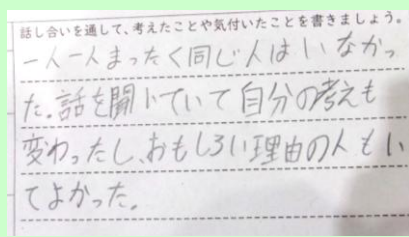 話し合いを通して、考えたことや気付いたことを書きましょう。
一人一人まったく同じ人はいなかっ
た。話を聞いていて自分の考えも
変わったし、おもしろい理由の人もい
てよかった。